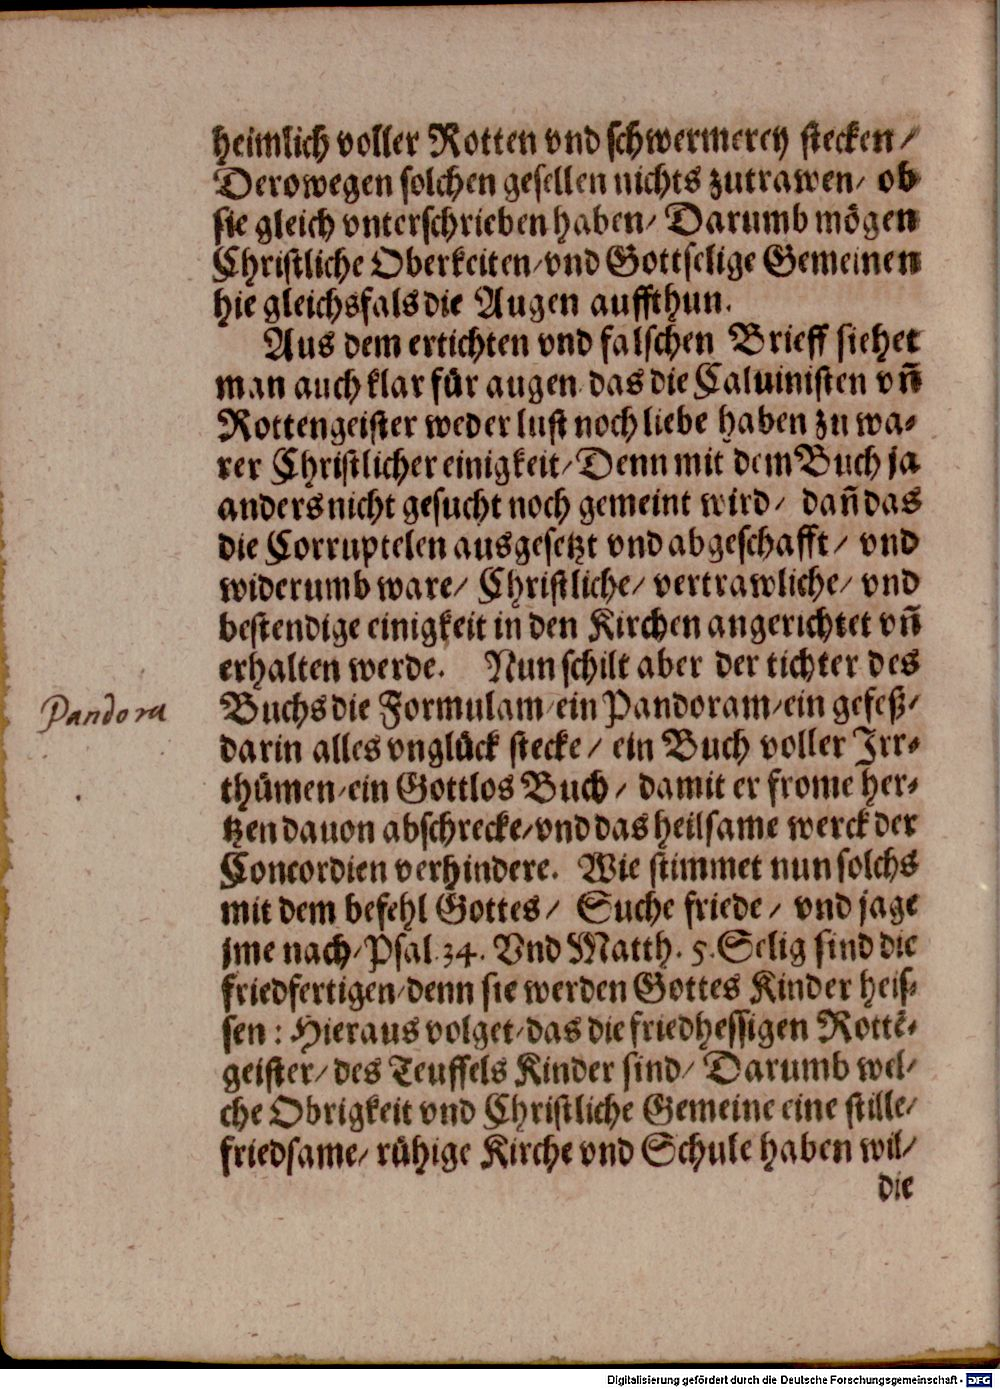 heimlich voller Rotten vnd schwermerey stecken /
Derowegen solchen gesellen nichts zutrawen / ob
sie gleich vnterschrieben haben / Darumb mögen
Christliche Oberkeiten / vnd Gottselige Gemeinen
hie gleichsfals die Augen auffthun.
Aus dem ertichten vnd falschen Brieff siehet
man auch klar für augen das die Caluinisten vñ
Rottengeister weder lust noch liebe haben zu wa-
rer Christlicher einigkeit / Denn mit dem Buch ja
anders nicht gesucht noch gemeint wird / dañ das
die Corruptelen ausgesetzt vnd abgeschafft / vnd
widerumb ware / Christliche / vertrawliche / vnd
bestendige einigkeit in den Kirchen angerichtet vñ
erhalten werde. Nun schilt aber der tichter des
Pandora
Buchs die Formulam / ein Pandoram / ein gefeß /
darin alles vnglück stecke / ein Buch voller Irr-
thümen / ein Gottlos Buch / damit er frome her-
tzen dauon abschrecke / vnd das heilsame werck der
Concordien verhindere. Wie stimmet nun solchs
mit dem befehl Gottes / Suche friede / vnd jage
jme nach / Psal. 34. Vnd Matth. 5. Selig sind die
friedfertigen / denn sie werden Gottes Kinder heis-
sen : Hieraus volget / das die friedhessigen Rottē-
geister / des Teuffels Kinder sind / Darumb wel-
che Obrigkeit vnd Christliche Gemeine eine stille /
friedsame / rühige Kirche vnd Schule haben wil /
die
Digitalisierung gefördert durch die Deutsche Forschungsgemeinschaft - DFG